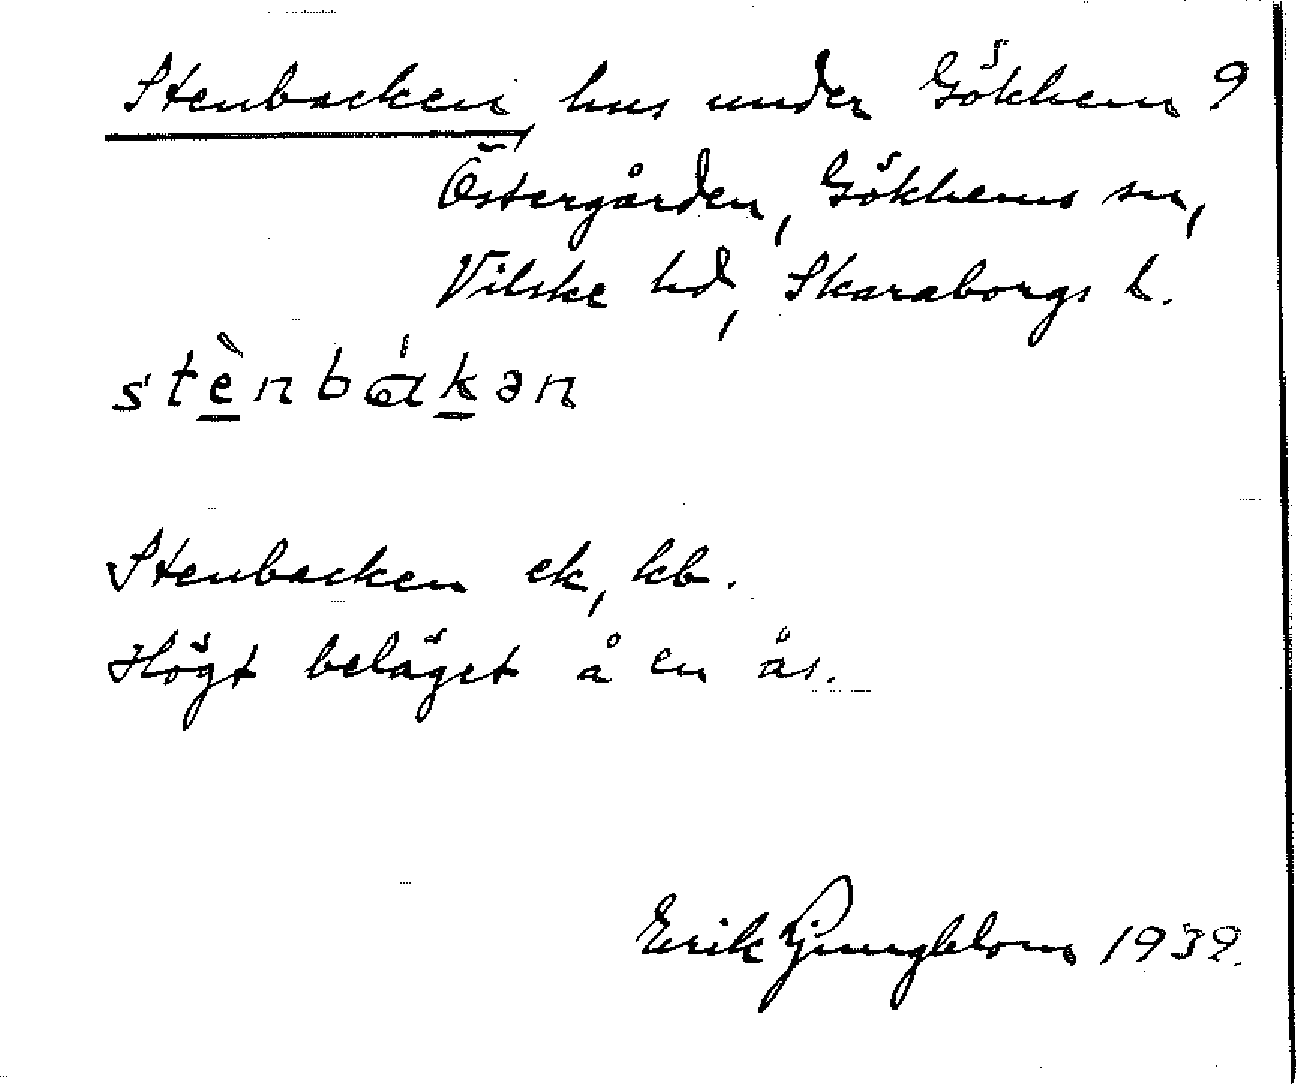 Stenbacken, hus under Gökhem 9
Östergården, Gökhems sn,
Vilske hd, Skaraborgs l.
stènbákən
Stenbacken ek, kb.
Högt beläget å en ås.
Erik Ljungblom 1939.